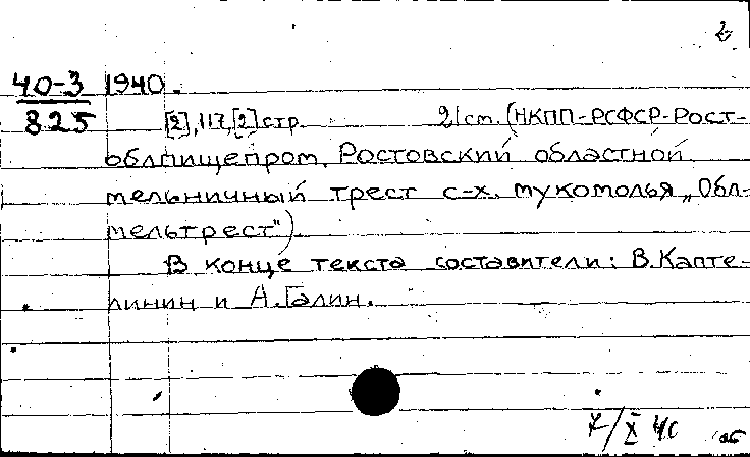 2
40-3 1940.
825 [2], 117, [2] стр. 21 ст. (НКПП-РСФСР-Рост-
облпищепром. Ростовский областной
мельничный трест с-х. мукомолья „Обл-
мельтрест")
В конце текста составители: В. Капте-
линин и А. Галин.
7/X 40